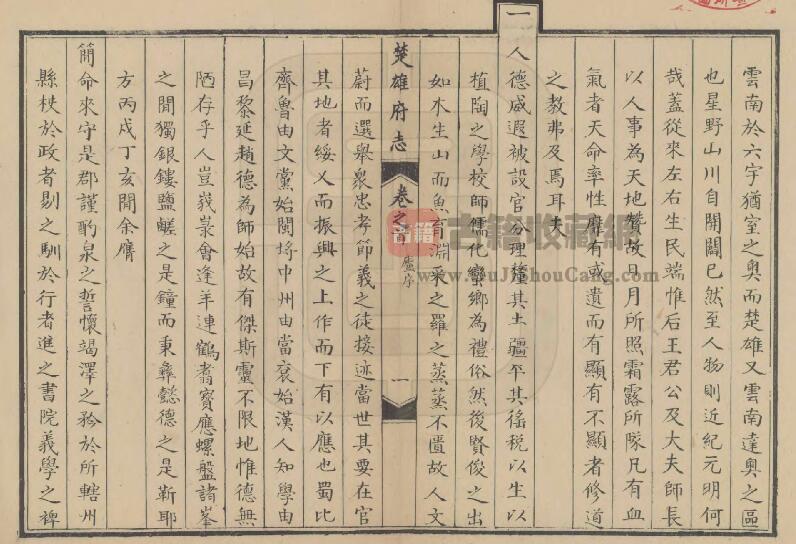 雲南於六宇猶室之奧而楚雄又雲南達奧之區
也星野山川自開闢已然至人物則近紀元明何
哉蓋從來左右生民端惟后王君公及大夫師長
以人事為天地贊故日月所照霜露所隊凡有血
氣者天命率性靡有或遺而有顯有不顯者修道
之教弗及焉耳夫
一人德威遐被設官分理釐其土疆平其徭稅以生以
植陶之學校師儒化蠻鄉為禮俗然後賢俊之出
如木生山而魚育淵采之羅之蒸蒸不匱故人文
楚雄府志
卷之首
盧序
一
蔚而選舉衆忠孝節義之徒接迹當世其要在官
其地者綏乂而振興之上作而下有以應也蜀比
齊魯由文黨始閩埒中州由當袞始漢人知學由
昌黎延趙德為師始故有傑斯靈不限地惟德無
陋存乎人豈峩㟭會逢羊連鶴翥寶應螺盤諸峯
之間獨銀鏤鹽鹺之是鐘而秉彝懿德之是靳耶
方丙戌丁亥間余膺
簡命來守是郡謹酌泉之誓懷竭澤之矜於所轄州
縣枤於政者剔之馴於行者進之書院義學之裨
古籍
古籍收藏網
www.GuJiShouCang.com